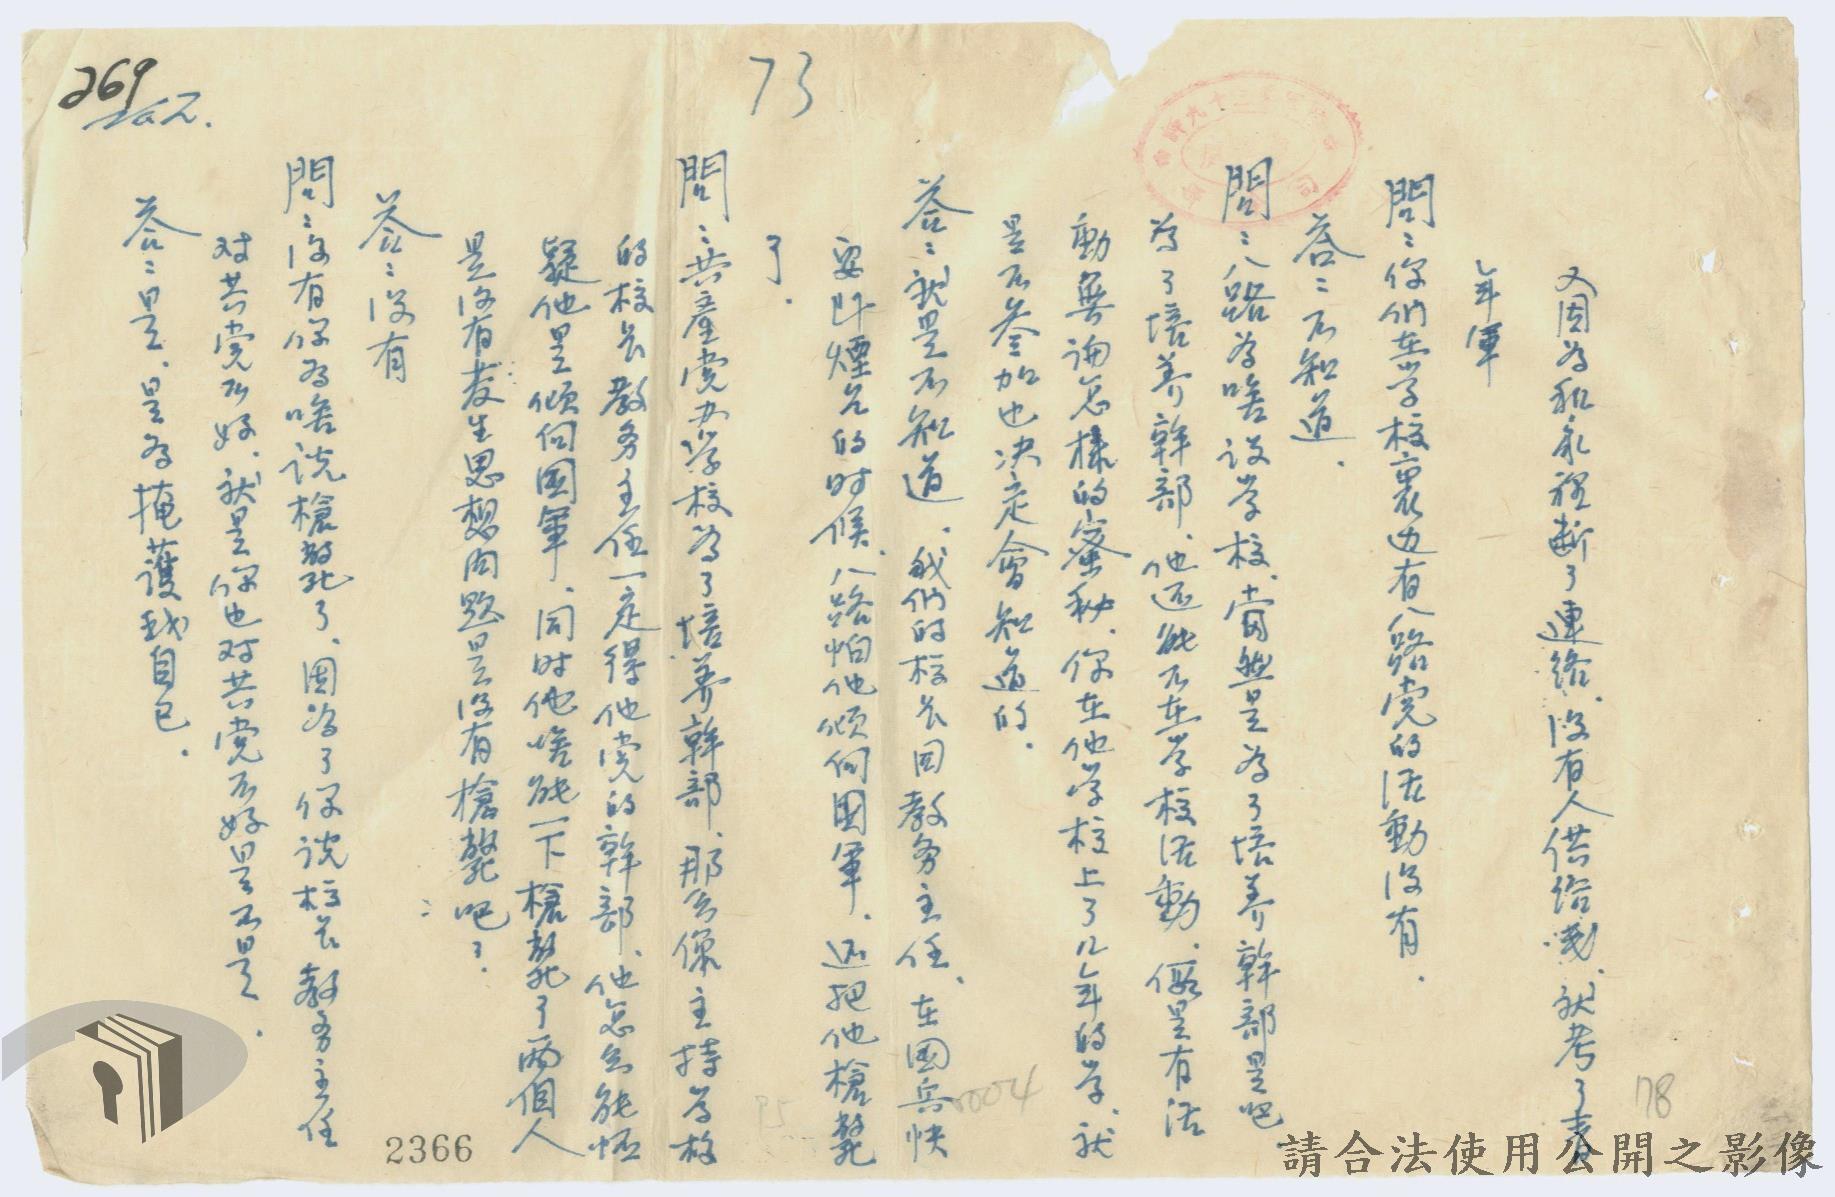 269
73
又因為和家裡断了連絡、没有人供给我、就考了青
年軍
問：你們在学校裏边有八路党的活動没有．
荅：不知道．
問：八路為啥設学校、當然是為了培养幹部是吧
為了培养幹部、他还能不在学校活動、假是有活
動無論怎様的蜜秘、你在他学校上了几年的学、就
是不参加也决定會知道的．
荅：就是不知道、我們的校长同教务主任、在國兵快
要即煙台的时候、八路怕他傾向國軍、还把他槍斃
了．
問：共產党办学校為了培养幹部、那么像主持学校
的校长教务主任一定得他党的幹部、他怎么能怀
疑他是傾向國軍、同时他啥能一下槍斃了两個人
是没有发生思想问题是没有槍斃吧？
荅：没有
問：没有你為啥说槍斃了、因為了你说校长教务主任
对共党不好、就是你也对共党不好是不是．
荅：是、是為掩護我自己．
2366
004
78
請合法使用公開之影像